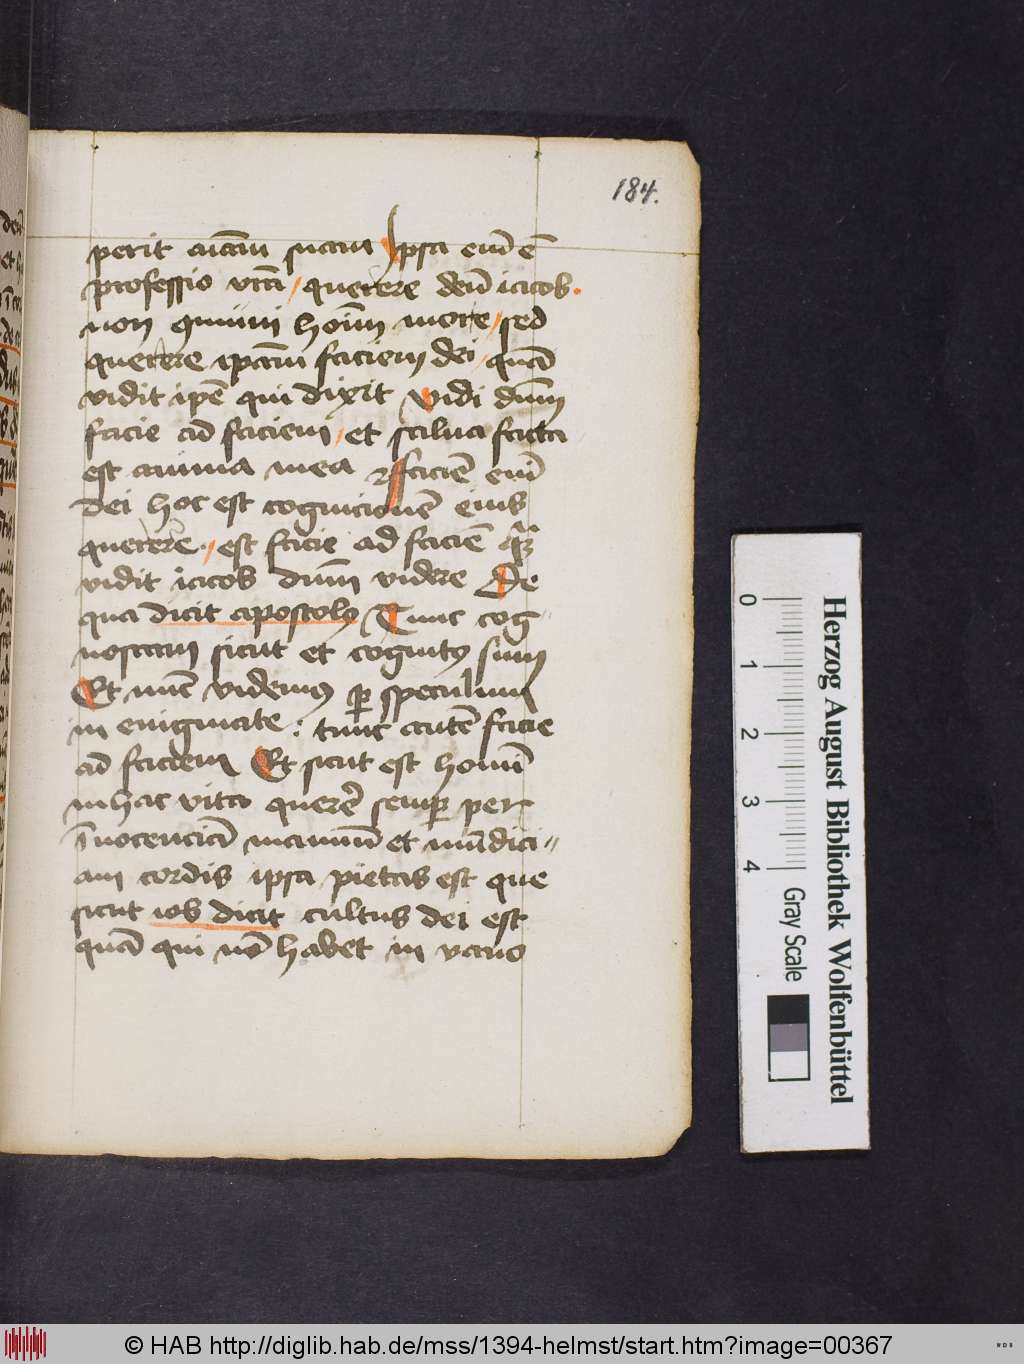 184.
perit aiaм suam Ipsa eni͂ e͂
professio vr͂a querere deu͂ iacob.
non quium hoi͂m more sed
querere ip͂am faciem dei qua͂
vidit ip͂e qui dixit Vidi dn͂m
facie ad faciem et salua facta
est anima mea facie͂ eni͂
dei hoc est cognicione͂ eius
querere est facie ad facie͂
vidit iacob dn͂m videre De
qua dicit apostolꝰ Tunc cog
noscam sicut et cognitꝰ sum
Et nu͂c videmꝰ ꝑ speculum
in enigmate : tunc aute͂ facie
ad faciem Et sicut est homi͂
in hac vita quere͂ semꝑ per
i͂nocencia͂ manuu͂ et mu͂dici
am cordis ipsa pietas est que
sicut iob dicit cultus dei est
qua͂ qui no͂ habet in vano
0 1 2 3 4
Gray Scale
Herzog August Bibliothek Wolfenbüttel
© HAB http://diglib.hab.de/mss/1394-helmst/start.htm?image=00367